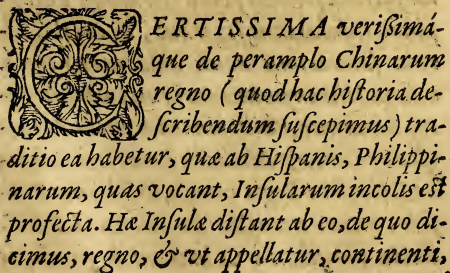 CERTISSIMA verißimá-
que de peramplo Chinarum
regno (quod hac historia de-
scribendum suscepimus) tra-
ditio ea habetur, quæ ab Hispanis, Philippi-
narum, quas vocant, Insularum incolis est
profecta. Hæ Insulæ distant ab eo, de quo di-
cimus, regno, & vt appellatur, continenti,